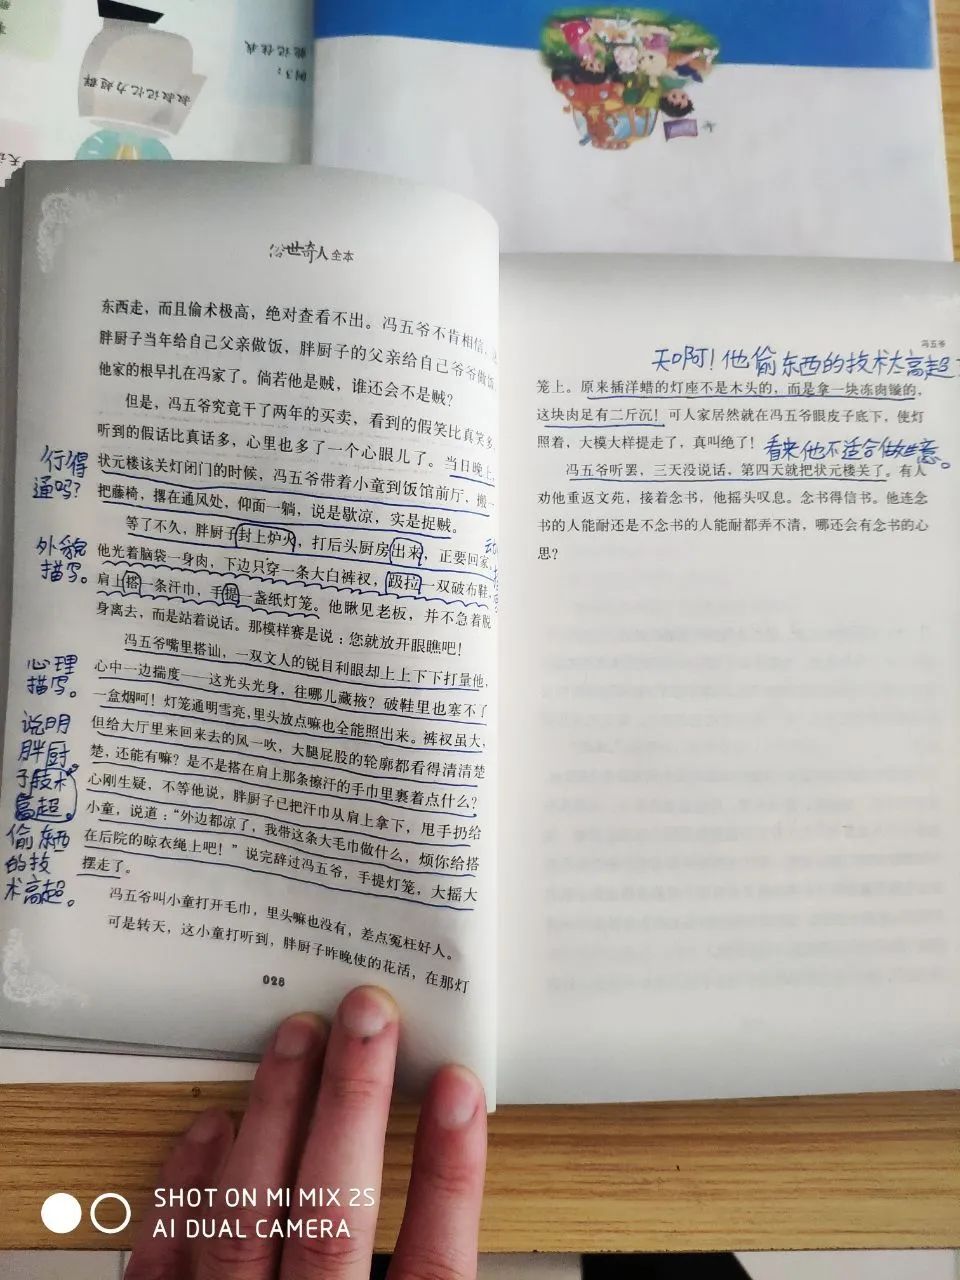 例3：
能记住我
叔叔记忆力超群
俗世奇人全本
东西走，而且偷术极高，绝对查看不出。冯五爷不肯相信，
胖厨子当年给自己父亲做饭，胖厨子的父亲给自己爷爷做饭，
他家的根早扎在冯家了。倘若他是贼，谁还会不是贼？
但是，冯五爷究竟干了两年的买卖，看到的假笑比真笑多，
听到的假话比真话多，心里也多了一个心眼儿了。当日晚上，
状元楼该关灯闭门的时候，冯五爷带着小童到饭馆前厅，搬一
把藤椅，撂在通风处，仰面一躺，说是歇凉，实是捉贼。
等了不久，胖厨子封上炉火，打后头厨房出来，正要回家，
他光着脑袋一身肉，下边只穿一条大白裤衩，趿拉一双破布鞋，
肩上搭一条汗巾，手提一盏纸灯笼。他瞅见老板，并不急着脱
身离去，而是站着说话。那模样赛是说：您就放开眼瞧吧！
冯五爷嘴里搭讪，一双文人的锐目利眼却上上下下打量他，
心中一边揣度——这光头光身，往哪儿藏掖？破鞋里也塞不了
一盒烟呵！灯笼通明雪亮，里头放点嘛也全能照出来。裤衩虽大，
但给大厅里来回来去的风一吹，大腿屁股的轮廓都看得清清楚
楚，还能有嘛？是不是搭在肩上那条擦汗的手巾里裹着点什么？
心刚生疑，不等他说，胖厨子已把汗巾从肩上拿下，甩手扔给
小童，说道：“外边都凉了，我带这条大毛巾做什么，烦你给搭
在后院的晾衣绳上吧！”说完辞过冯五爷，手提灯笼，大摇大
摆走了。
冯五爷叫小童打开毛巾，里头嘛也没有，差点冤枉好人。
可是转天，这小童打听到，胖厨子昨晚使的花活，在那灯
028
行得
通吗？
外貌
描写。
心理
描写。
说明
胖厨
子技术
高超。
偷东西
的技
术高超。
冯五爷
天啊！他偷东西的技术太高超了
笼上。原来插洋蜡的灯座不是木头的，而是拿一块冻肉镟的，
这块肉足有二斤沉！可人家居然就在冯五爷眼皮子底下，使灯
照着，大模大样提走了，真叫绝了！
看来他不适合做生意。
冯五爷听罢，三天没说话，第四天就把状元楼关了。有人
劝他重返文苑，接着念书，他摇头叹息。念书得信书。他连念
书的人能耐还是不念书的人能耐都弄不清，哪还会有念书的心
思？
SHOT ON MI MIX 2S
AI DUAL CAMERA